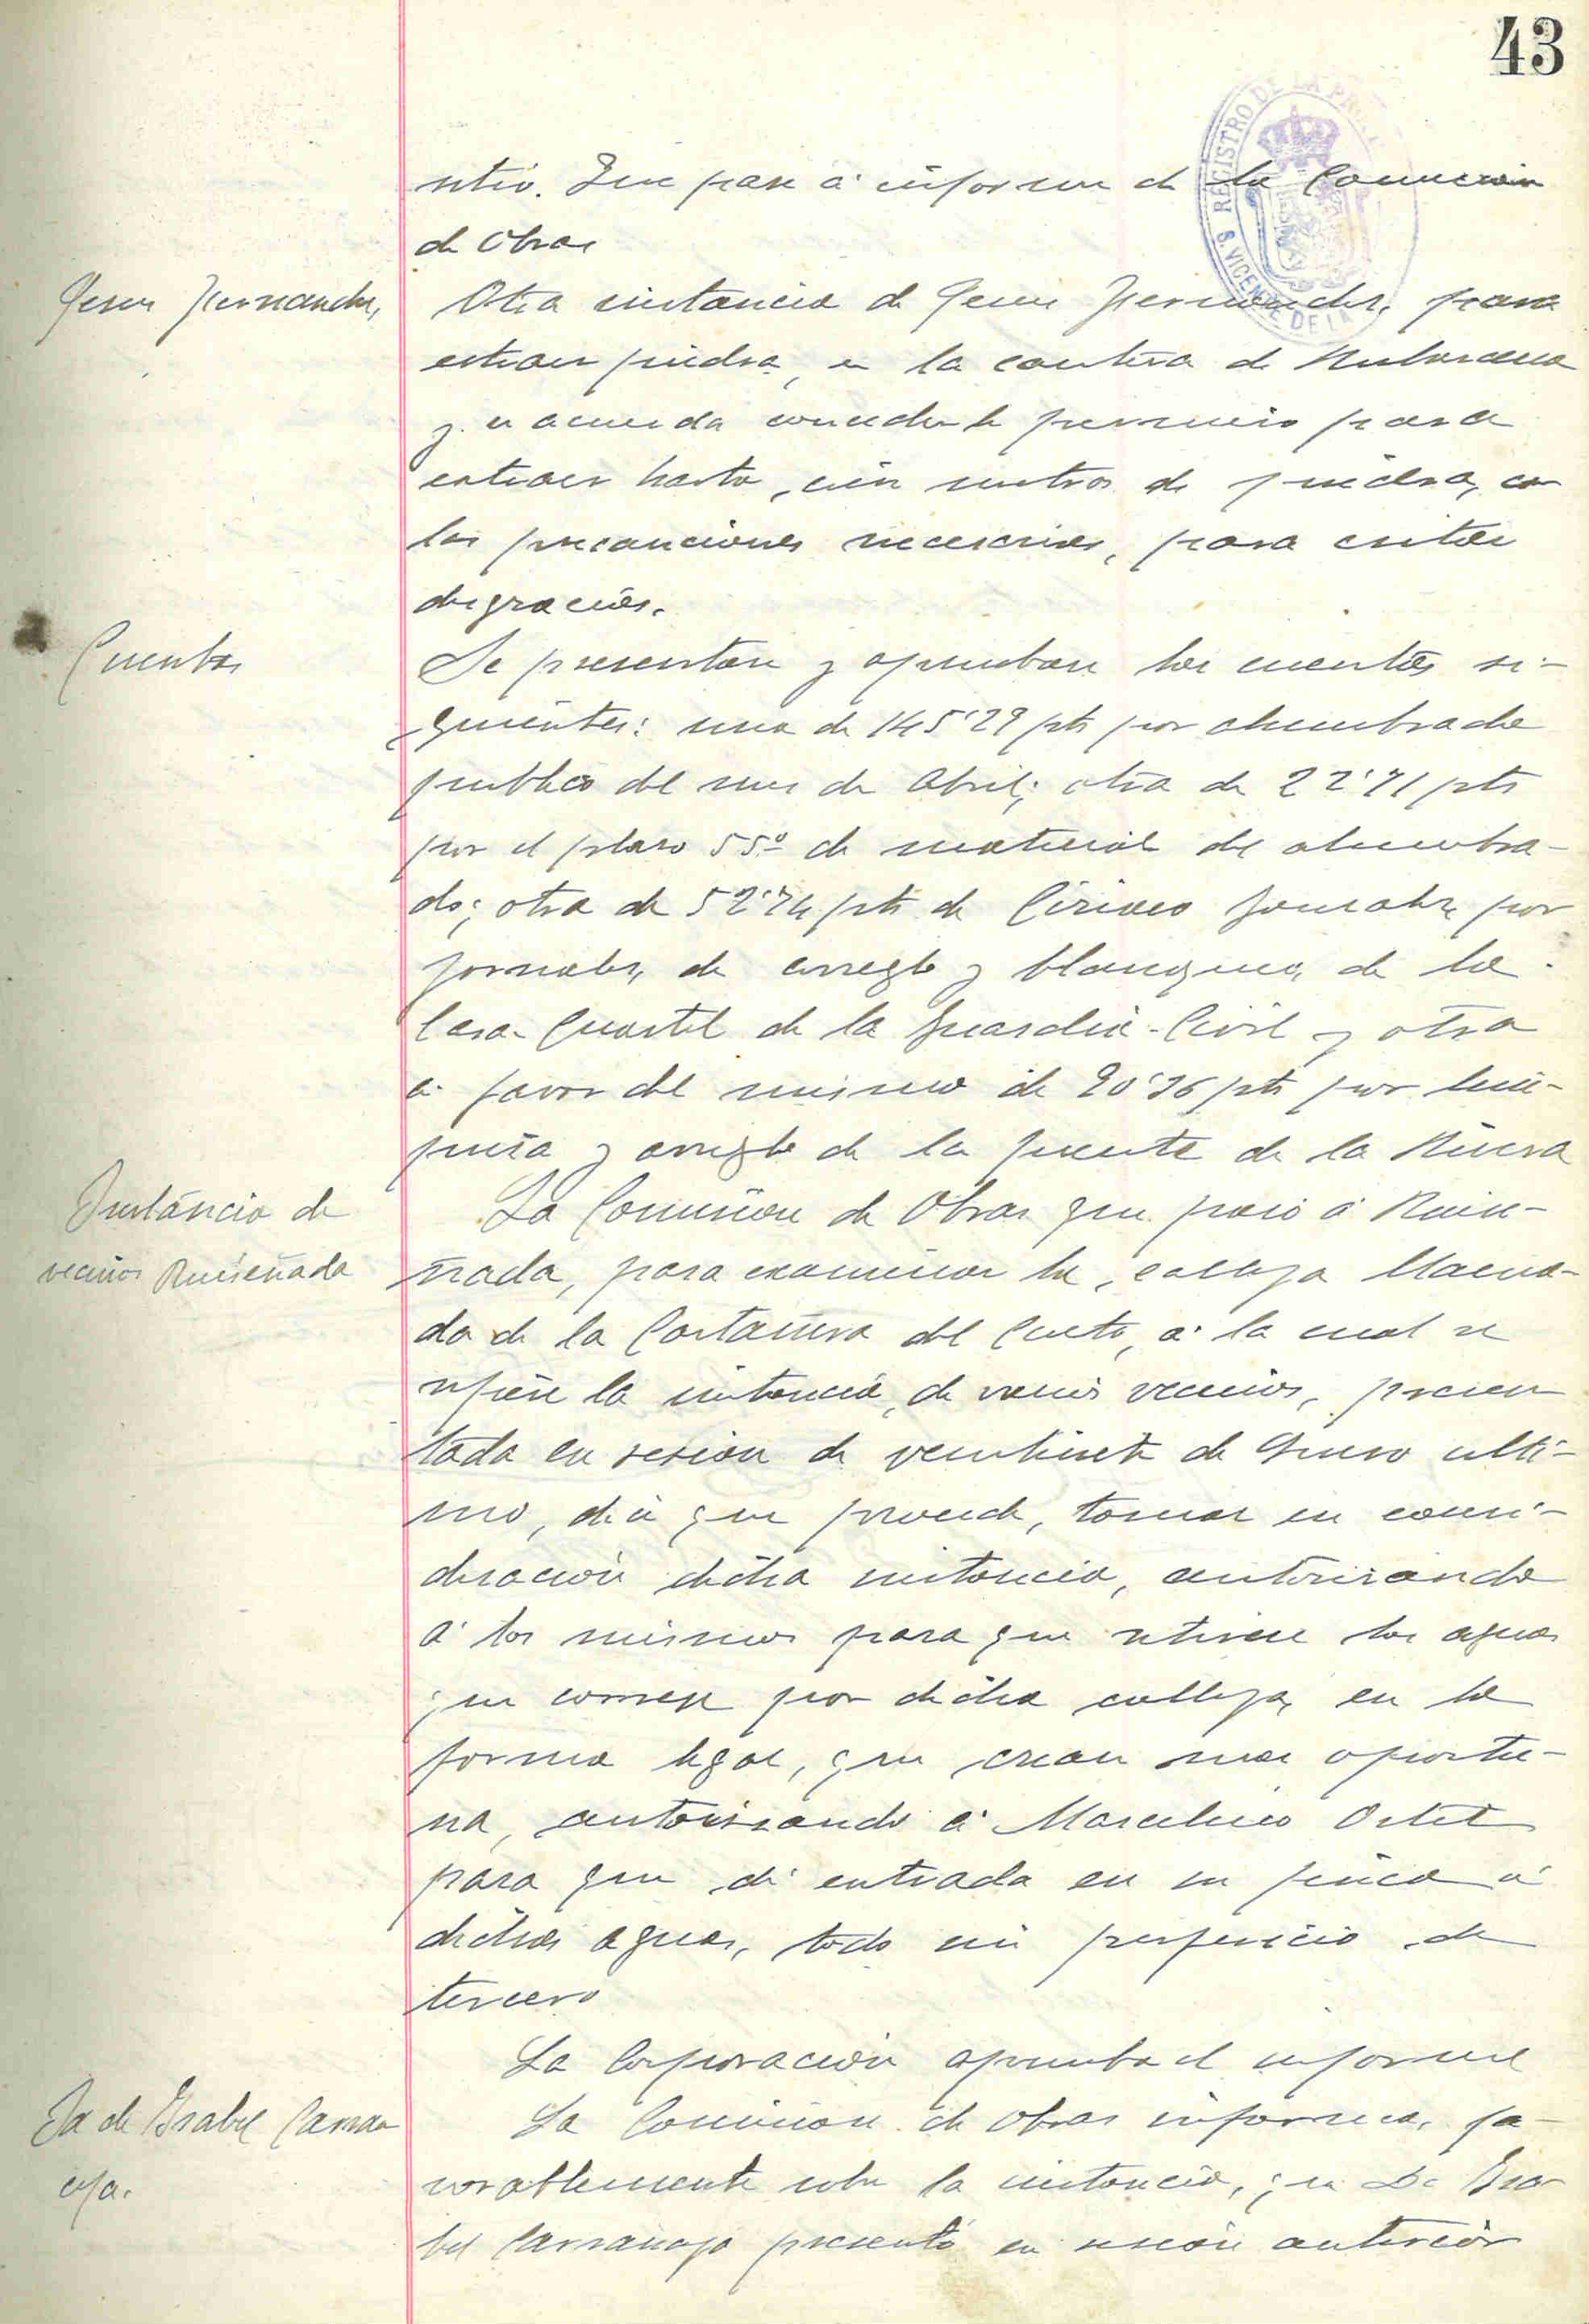 43
REGISTRO DE LA PROP
S. VICENTE DE LA
sitio. Que pase á informe de la Comision
de Obras
Jesus Fernandez,
Otra instancia de Jesus Fernandez, para
extraer piedra, en la cantera de
y se acuerda concederle permiso para
extraer hasta cien metros de piedra, con
las precauciones necesarias, para evitar
desgracias.
Cuentas
Se presentan y aprueban las cuentas si-
guientes: una de 145'29 pts por alumbrado
publico del mes de Abril; otra de 22'71 pts
por el plazo 55º de material de alumbra-
do; otra de 52'74 pts de Ciriaco Gonzalez por
jornales, de arreglo y blanqueo, de la
Casa-Cuartel de la Guardia-Civil y otra
á favor del mismo de 20'36 pts por lim-
pieza y arreglo de la fuente de la
Instáncia de
vecinos Ruiseñada
La Comisión de Obras que pasó á Ruise-
ñada, para examinar la calleja llama-
da de la Portañera del Cueto, á la cual se
refiere la instancia, de varios vecinos, presen
tada en sesion de veintisiete de Enero ulti-
mo, dice que procede, tomar en consi-
deración dicha instancia, autorizando
á los mismos para que retiren las aguas
que corren por dicha calleja, en la
forma legal, que crean mas oportu-
na, autorizando á Marcelino
para que dé entrada en su finca á
dichas aguas, todo sin perjuicio de
tercero
La Corporación aprueba el informe
Ia de Isabel Carran
ceja.
La Comision de Obras informa, fa-
vorablemente sobre la instancia, que Da Isa-
bel Carranceja presentó en sesión anterior